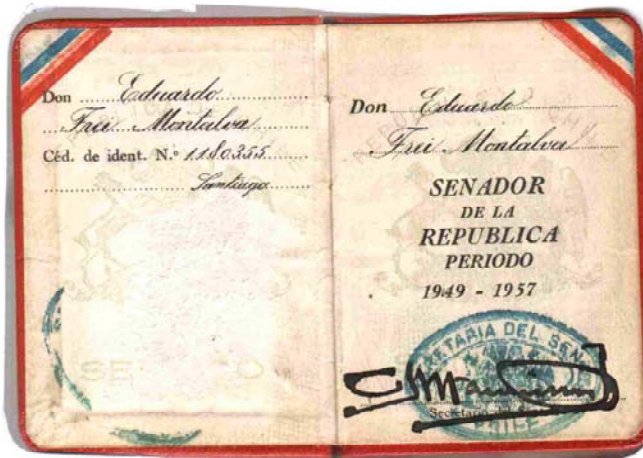 Don Eduardo
Frei Montalva
Céd. de ident. N.º 1180355
Santiago
SENADO
Don Eduardo
Frei Montalva
SENADOR
DE LA
REPUBLICA
PERIODO
1949 - 1957
SECRETARIA DEL SENADO
Secretario del
CHILE